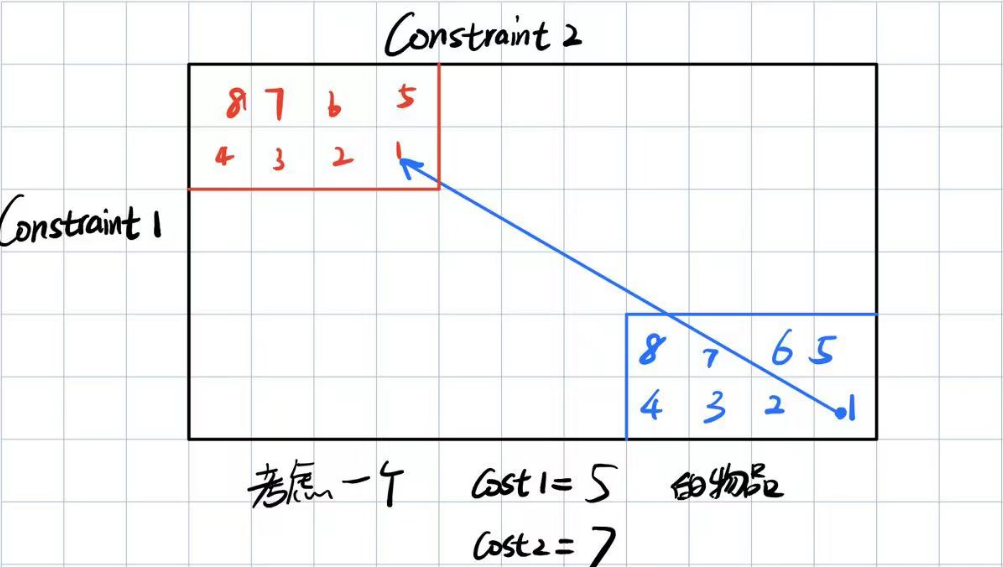 Constraint 2
8 7 6 5
4 3 2 1
Constraint 1
8 7 6 5
4 3 2 1
考虑一个 Cost1 = 5 的物品
Cost2 = 7